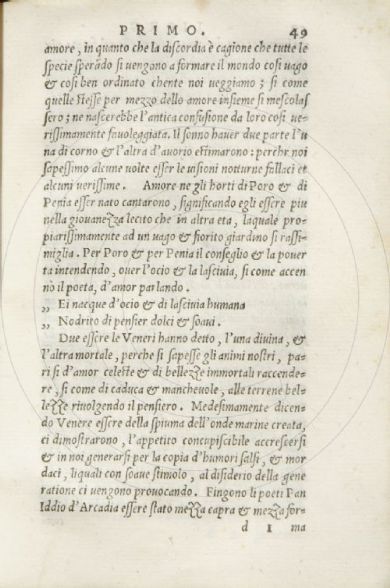 PRIMO. 49
amore, in quanto che la discordia è cagione che tutte le
specie sperādo si uengono a formare il mondo cosi uago
& cosi ben ordinato chente noi ueggiamo; si come
quelle stesse per mezzo dello amore insieme si mescolas
sero; ne nascerebbe l'antica confusione da loro cosi ue-
rissimamente fauoleggiata. Il sonno hauer due parte l'u
na di corno & l'altra d'auorio estimarono: perche noi
sapessimo alcune uolte esser le uisioni notturne fallaci et
alcuni uerissime. Amore ne gli horti di Poro & di
Penia esser nato cantarono, significando egli essere piu
nella giouanezza lecito che in altra eta, laquale pro-
piarissimamente ad un uago & fiorito giardino si rassi-
miglia. Per Poro & per Penia il conseglio & la pouer
ta intendendo, ouer l'ocio & la lasciuia, si come accen
nò il poeta, d'amor parlando.
,, Ei nacque d'ocio & di lasciuia humana
,, Nodrito di pensier dolci & soaui.
Due essere le Veneri hanno detto, l'una diuina, &
l'altra mortale, perche si sapesse gli animi nostri, pa-
ri si d'amor celeste & di bellezze immortali raccende-
re, si come di caduca & mancheuole, alle terrene bel-
lezze riuolgendo il pensiero. Medesimamente dicen-
do Venere essere della spiuma dell'onde marine creata,
ci dimostrarono, l'appetito concupiscibile accrescersi
& in noi generarsi per la copia d'humori salsi, & mor
daci, liquali con soaue stimolo, al disiderio della gene
ratione ci uengono prouocando. Fingono li poeti Pan
Iddio d'Arcadia essere stato mezza capra & mezza for-
d 1 ma